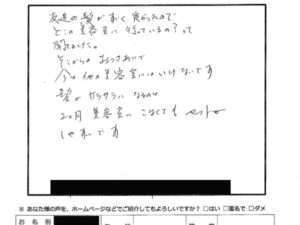 友達の髪がすごく変わったので
どこの美容室に行っているの?って
聞きました。
そこからのおつきあいで
今は他の美容室にはいけないです
髪がサラサラになるのは
2ヶ月美容室にこなくてもセットが
しやすいです
※ あなた様の声を、ホームページなどでご紹介してもよろしいですか? □はい □匿名で □ダメ
お名前
ご年代
ご職業